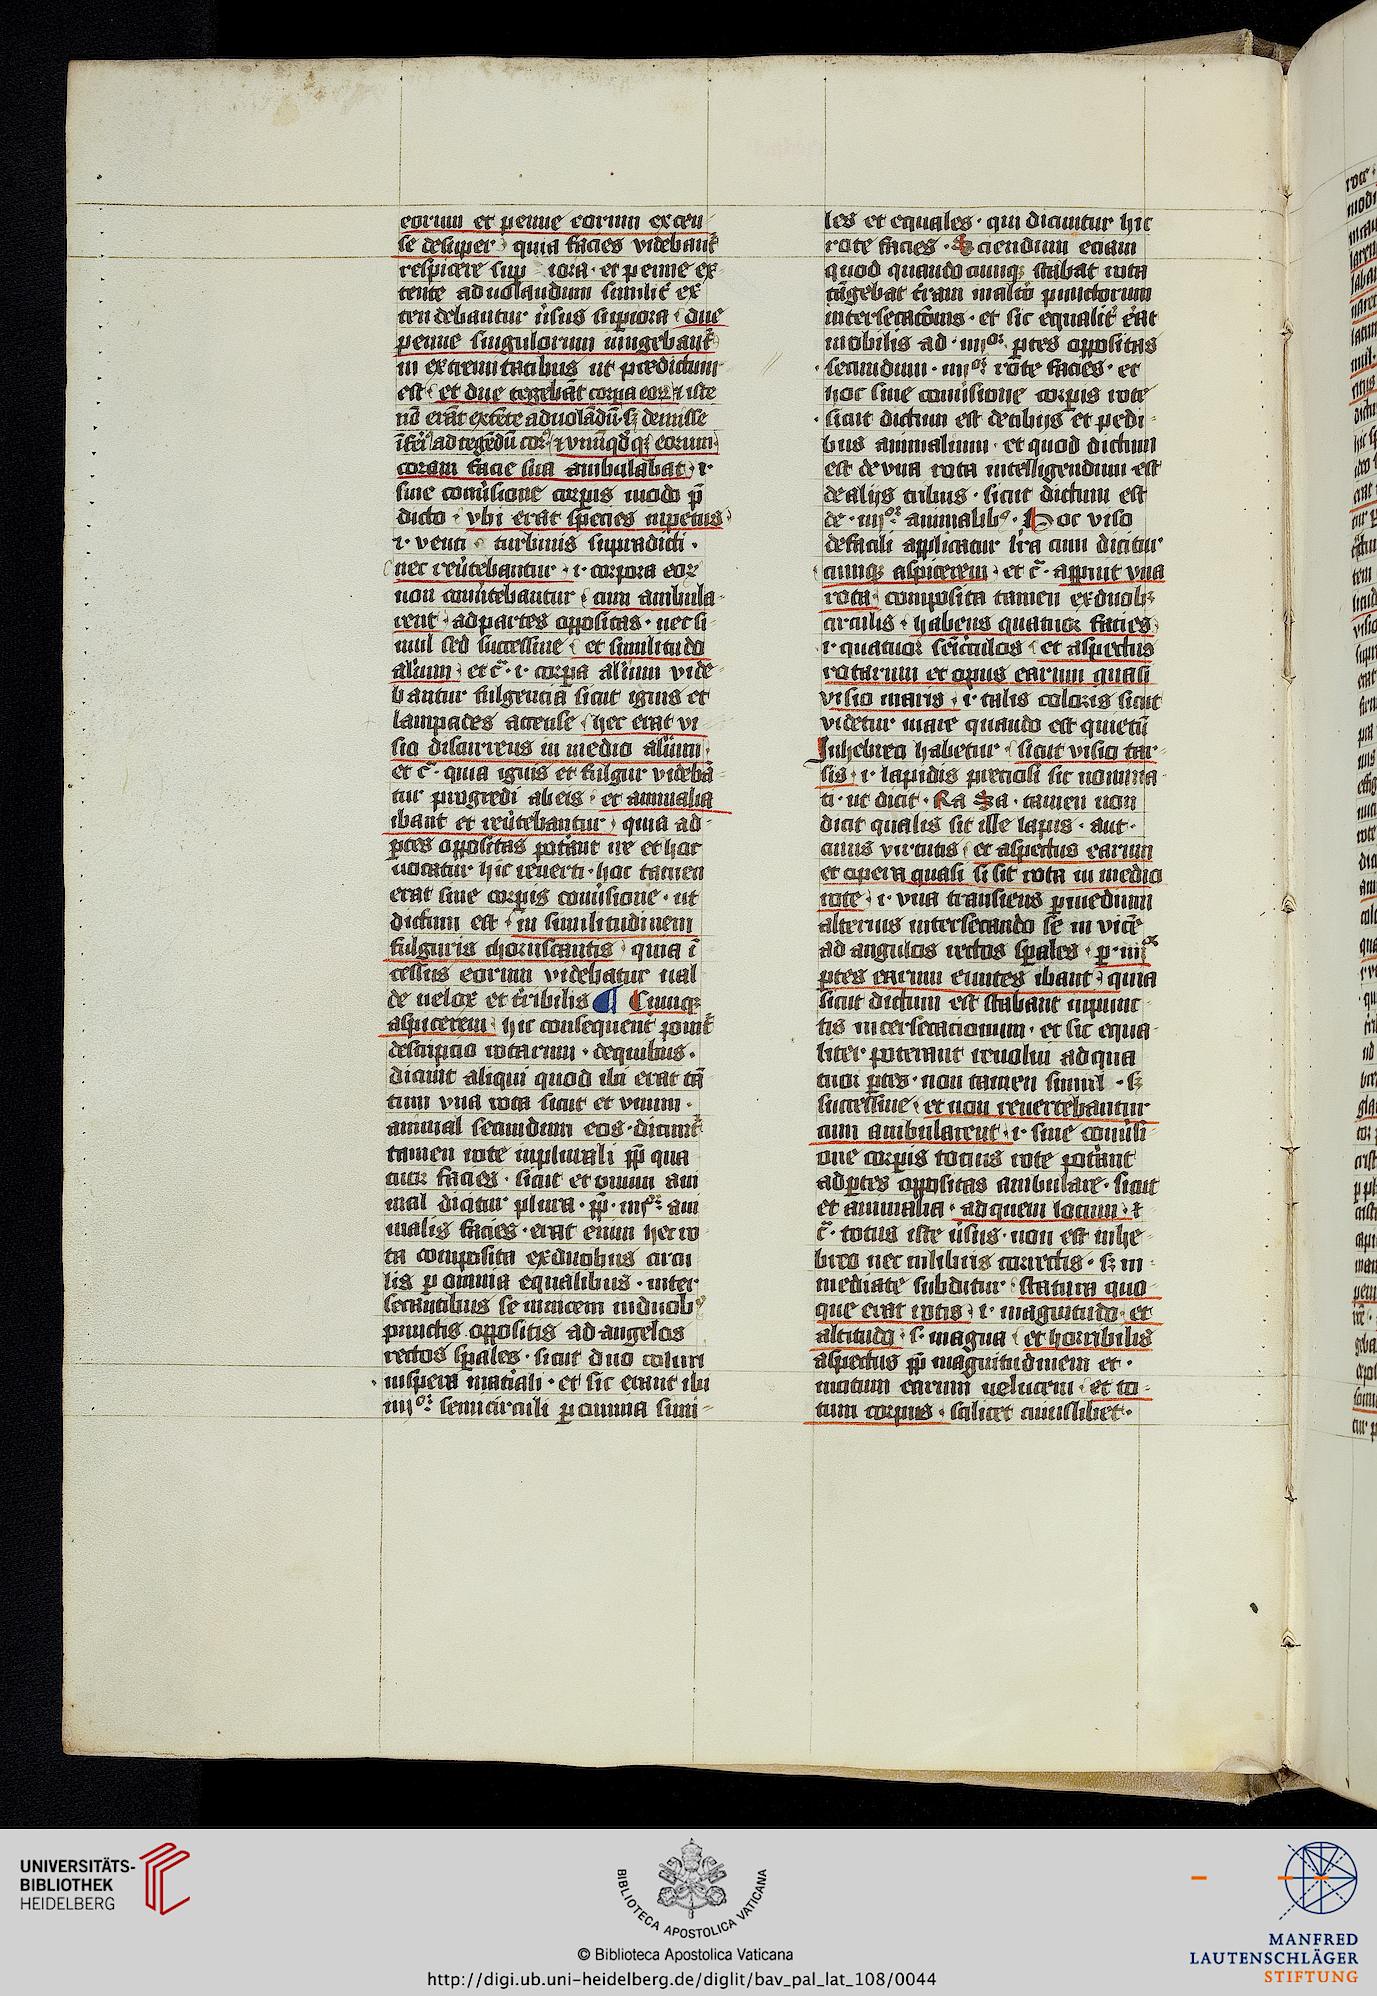 eorum et penne eorum exten
se desuper · quia facies videbant̃
respicere sup iora · et penne ex
tente ad uolandum similit̃ ex
ten debantur ũsus supiora · due
penne singulorum iungebant̃
in extremitatibus ut predictum
est · et due tegebãt corpa eorꝝ · i iste
nõ erãt extẽte ad uolãdũ · sꝫ demisse
ad tegẽdũ corꝰ · et vnũqd̃qꝫ eorum
coram facie sua ambulabat · i·
sine conũsione corpis modo p̃
dicto · vbi erat species impetus
i· venti · turbinis supradicti ·
nec reũtebantur · i· corpora eorꝝ
non conũtebantur · cum ambula
rent · ad partes oppositas · nec si
mul sed successiue · et similitudo
alĩum · et c̃· i· corpa alĩum vide
bantur fulgencia sicut ignis et
lampades accense · hec erat vi
sio discurrens in medio alĩum ·
et c̃· quia ignis et fulgur videbã
tur progredi ab eis · et animalia
ibant et reũtebantur · quia ad
ptes oppositas pot̃ant ire et hoc
uocatur hic reuerti · hoc tamen
erat sine corpis conũsione · ut
dictum est · in similitudinem
fulguris choruscantis · quia ĩ
cessus eorum videbatur ual
de uelox et t̃ribilis ¶ Cumqꝫ
aspicerem · hic consequent̃ ponit̃
descripcio rotarum · de quibus ·
dicunt aliqui quod ibi erat tã
tum vna rota sicut et vnum ·
animal secundum eos · dicunt̃
tamen rote in plurali ꝓp̃ qua
tuor facies · sicut et vnum ani
mal dicitur plura · ꝓp̃ · iiijᵒʳ · ani
malis facies · erat enim hec ro
ta composita ex duobus circu
lis per omnia equalibus · inter
secantibus se inuicem in duobꝰ
punctis oppositis ad angelos
rectos sp̃ales · sicut duo coluri
in spera mat̃iali · et sic erant ibi
iiijᵒʳ· semicirculi per omnia simi
les et equales · qui dicuntur hic
rote facies · Sciendum eciam
quod quandocumqꝫ stabat rota
tãgebat t̃ram in alt̃o punctorum
intersecac̃onis · et sic equalit̃ er̃at
mobilis ad · iiijᵒʳ· ptes oppositas
secundum · iiijᵒʳ· rote facies · et
hoc sine conũsione corpis rote
sicut dictum est de tibijs et pedi
bus animalium · et quod dictum
est de vna rota intelligendum est
de alijs tribus · sicut dictum est
de · iiijᵒʳ animalibꝰ · Hoc viso
de facili applicatur lr̃a cum dicitur
cumqꝫ aspicerem · et c̃· appuit vna
rota · composita tamen ex duobꝫ
circulis · habens quatuor facies ·
i· quatuor sem̃iculos · et aspectus
rotarum et opus earum quasi
visio maris · i· talis coloris sicut
videtur mare quando est quietũ
In hebreo habetur · sicut visio tar
sis · i· lapidis preciosi sic nomina
ti · ut dicit · Ra Sa · tamen non
dicit qualis sit ille lapis · aut ·
cuius virtutis · et aspectus earum
et opera quasi si sit rota in medio
rote · i· vna transiens p medium
alterius intersecando se in vicẽ
ad angulos rectos sp̃ales · p · iiijᵒʳ
ptes earum euntes ibant · quia
sicut dictum est stabant in punc
tis intersecacionum · et sic equa
liter poterant reuolui ad qua
tuor ptes · non tamen simul · sꝫ
successiue · et non reuertebantur
cum ambularent · i· sine conũsi
one corpis tocius rote pot̃ant
ad ptes oppositas ambulare · sicut
et animalia · ad quem locum · et
c̃· totus iste ũsus · non est in he
breo nec in libris correctis · sꝫ im
mediate subditur · statura quo
que erat rotis · i· magnitudo · et
altitudo · s· magna · et horribilis
aspectus ꝓp̃ magnitudinem et ·
motum earum uelucem · et to
tum corpus · scilicet cuiuslibet ·
UNIVERSITÄTS-
BIBLIOTHEK
HEIDELBERG
BIBLIOTECA APOSTOLICA VATICANA
© Biblioteca Apostolica Vaticana
http://digi.ub.uni-heidelberg.de/diglit/bav_pal_lat_108/0044
MANFRED
LAUTENSCHLÄGER
STIFTUNG